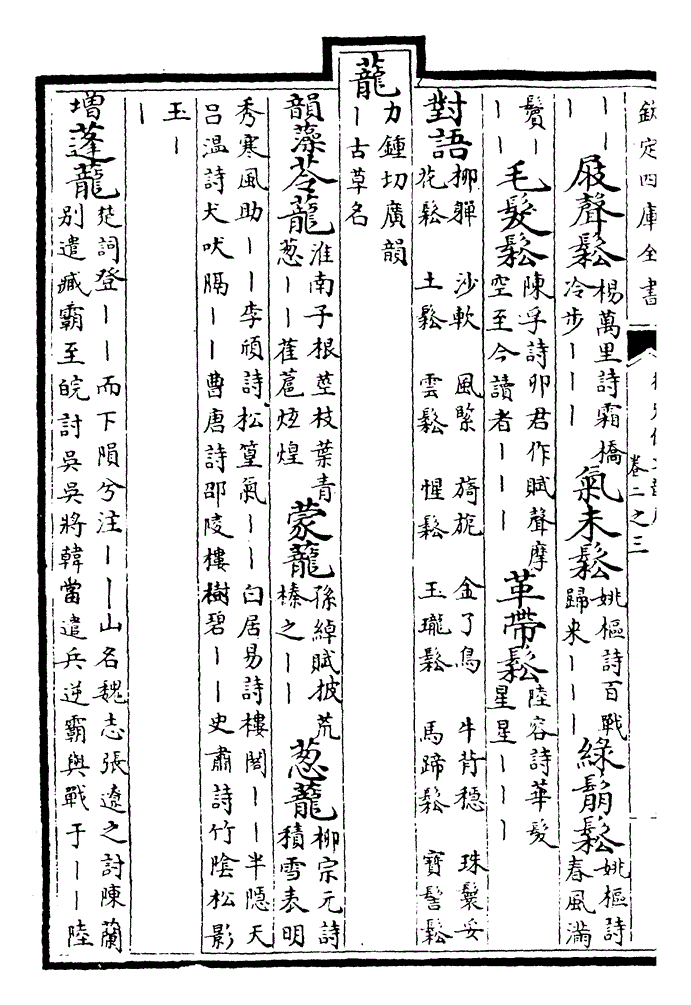 欽定四庫全書
卷二之三
丨丨屐聲鬆楊萬里詩霜橋冷步丨丨丨氣未鬆姚樞詩百戰歸来丨丨丨綠鬅鬆姚樞詩春風滿
鬢丨丨丨毛髮鬆陳孚詩卯君作賦聲摩空至今讀者丨丨丨革帶鬆陸容詩華髪星星丨丨丨
對語柳軃花鬆 沙軟土鬆 風緊雲鬆 旖旎惺鬆 金了鳥玉瓏鬆 牛背穏馬蹄鬆 珠鬟妥寶髻鬆
蘢力鍾切廣韻丨古草名
韻藻苓蘢淮南子根莖枝葉青葱丨丨萑蔰炫煌蒙蘢孫綽賦披荒榛之丨丨葱蘢柳宗元詩積雪表明
秀寒風助丨丨李頎詩松篁氣丨丨白居易詩樓閣丨丨半隱天
吕温詩犬吠隔丨丨曹唐詩邵陵樓樹碧丨丨史肅詩竹陰松影
玉丨丨
增蓬蘢楚詞登丨丨而下隕兮注丨丨山名魏志張遼之討陳蘭别遣臧霸至皖討吴吴將韓當遣兵逆霸與戰于丨丨陸